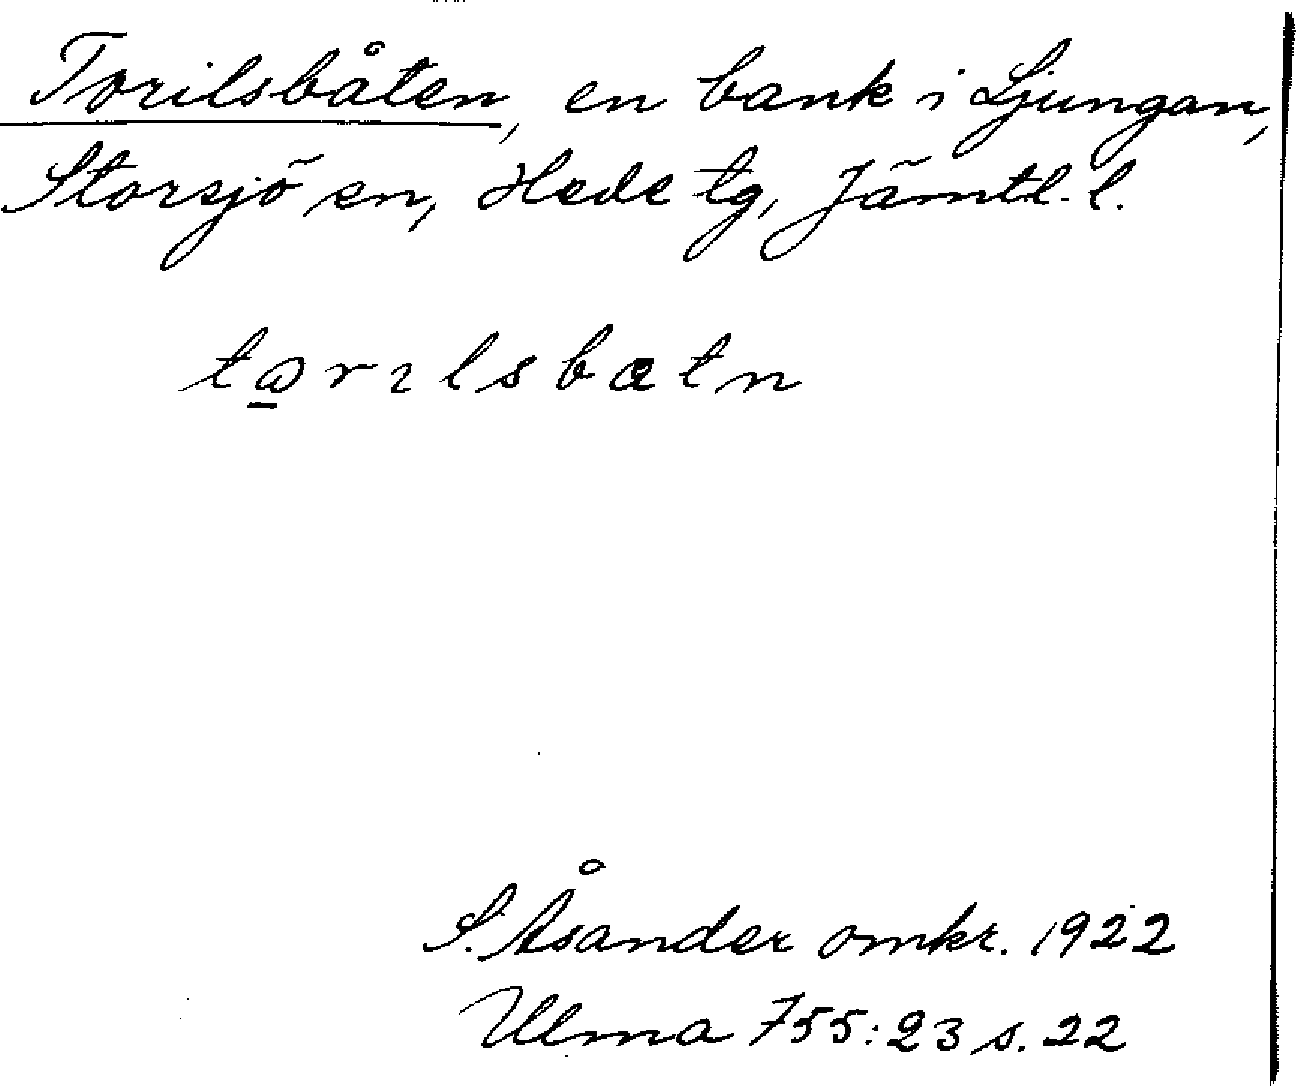 Torilsbåten, en bank i Ljungan,
Storsjö sn, Hede tg, Jämtl. l.
tɷrılsbatn
S. Åsander omkr. 1922
Ulma 755:23 s. 22